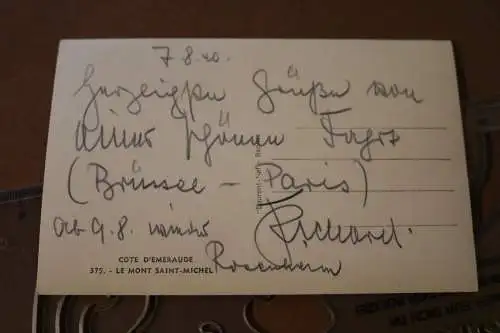 7 8 40.
Herzlichste Grüße von
einer schönen Fahrt
(Brüssel – Paris)
ab 9. 8. wieder
Richard.
Rosenheim
COTE D'EMERAUDE
375. - LE MONT SAINT-MICHEL